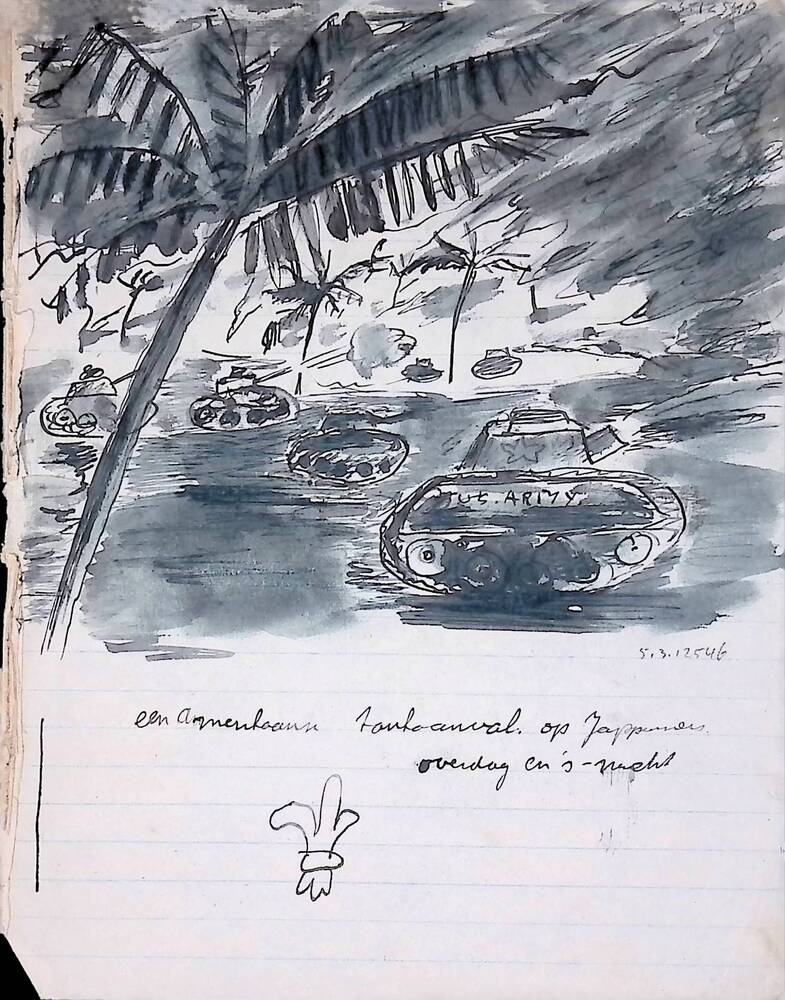 U.S. ARMY.
5.3.12546
een Amerikaanse tankaanval. op Jappaners.
overdag en 's-nacht